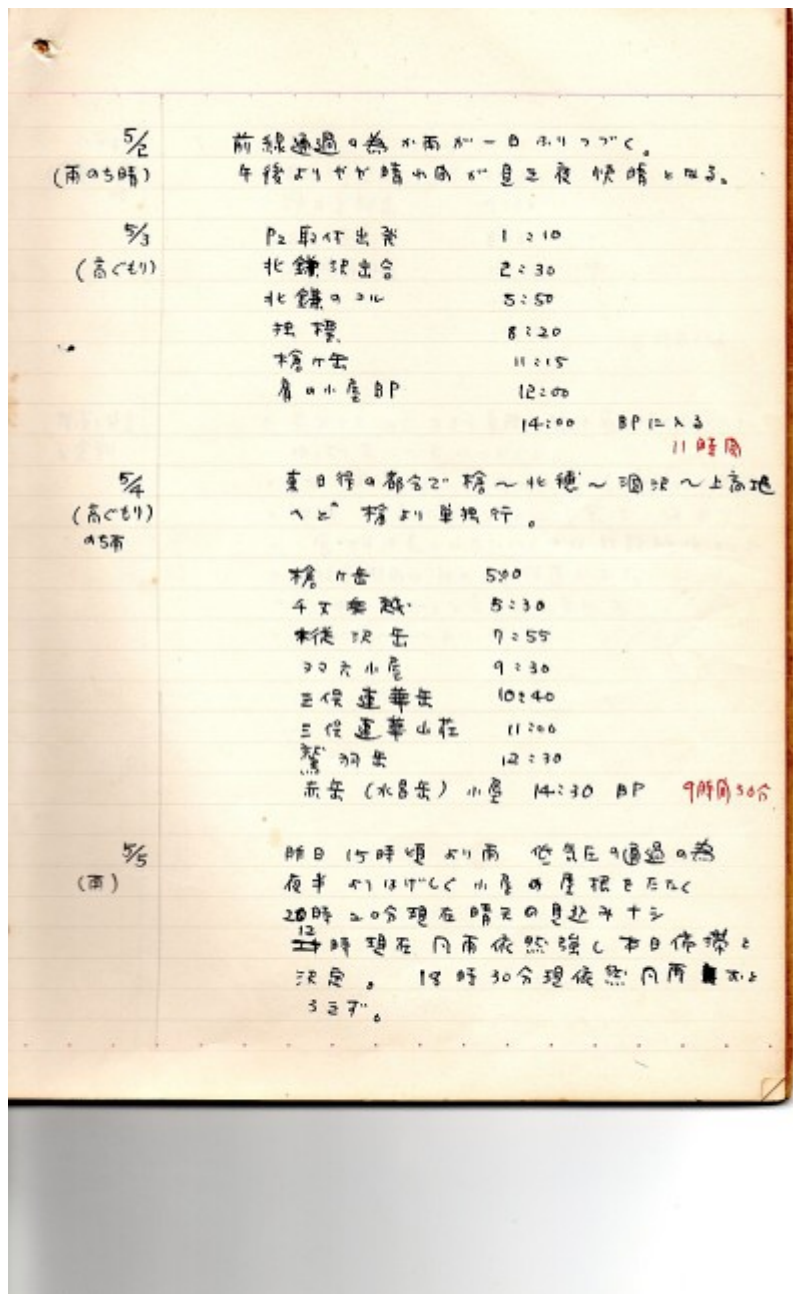 5/2 前線通過の為か雨が一日ふりつづく。
(雨のち晴) 午後よりやや晴れ間が見え夜快晴となる。
5/3 P2取付出発 1:10
(高ぐもり) 北鎌沢出合 2:30
北鎌のコル 5:50
独標 8:20
槍ヶ岳 11:15
肩の小屋BP 12:00
14:00 BPに入る
11時間
5/4 東日程の都合で槍〜北穂〜涸沢〜上高地
(高ぐもり) へと 槍より単独行。
のち雨
槍ヶ岳 5:00
千丈乗越 5:30
樅沢岳 7:55
双六小屋 9:30
三俣蓮華岳 10:40
三俣蓮華山荘 11:00
鷲羽岳 12:30
赤岳(水晶岳)小屋 14:30 BP 9時間30分
5/5 昨日15時頃より雨 低気圧の通過の為
(雨) 夜半よりはげしく小屋の屋根をたたく
時20分現在晴天の見込ミナシ
12時現在風雨依然強し本日停滞と
決定。 18時30分現依然風雨おと
ろえず。